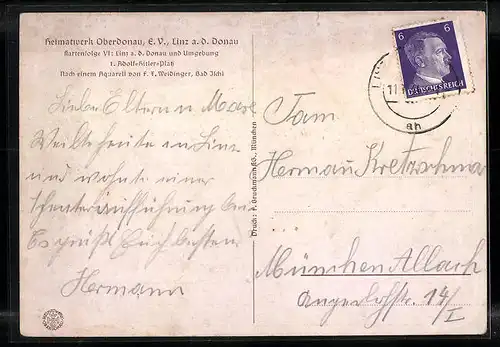 Heimatwerk Oberdonau, E. V., Linz a. d. Donau
Kartenfolge VI: Linz a. d. Donau und Umgebung
1. Adolf-Hitler-Platz
Nach einem Aquarell von F. X. Weidinger, Bad Ischl
Liebe Eltern u.
Weilte heute in Linz
und wohnte einer
Theateraufführung bei
Es grüßt Euch bestens
Hermann
Druck: F. Bruckmann KG., München
6 6
DEUTSCHES REICH
ah
Fam
Hermann Kretzschmar
München Allach
14/I